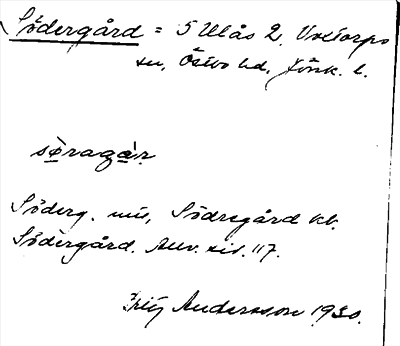 Södergård = 5 Ulås 2, Voxtorps
sn, Östbo hd, Jönk. l.
sø̀ragà̱r
Söderg. Södregård kb.
Södergård. Anv. sid. 117.
Andersson 1930.